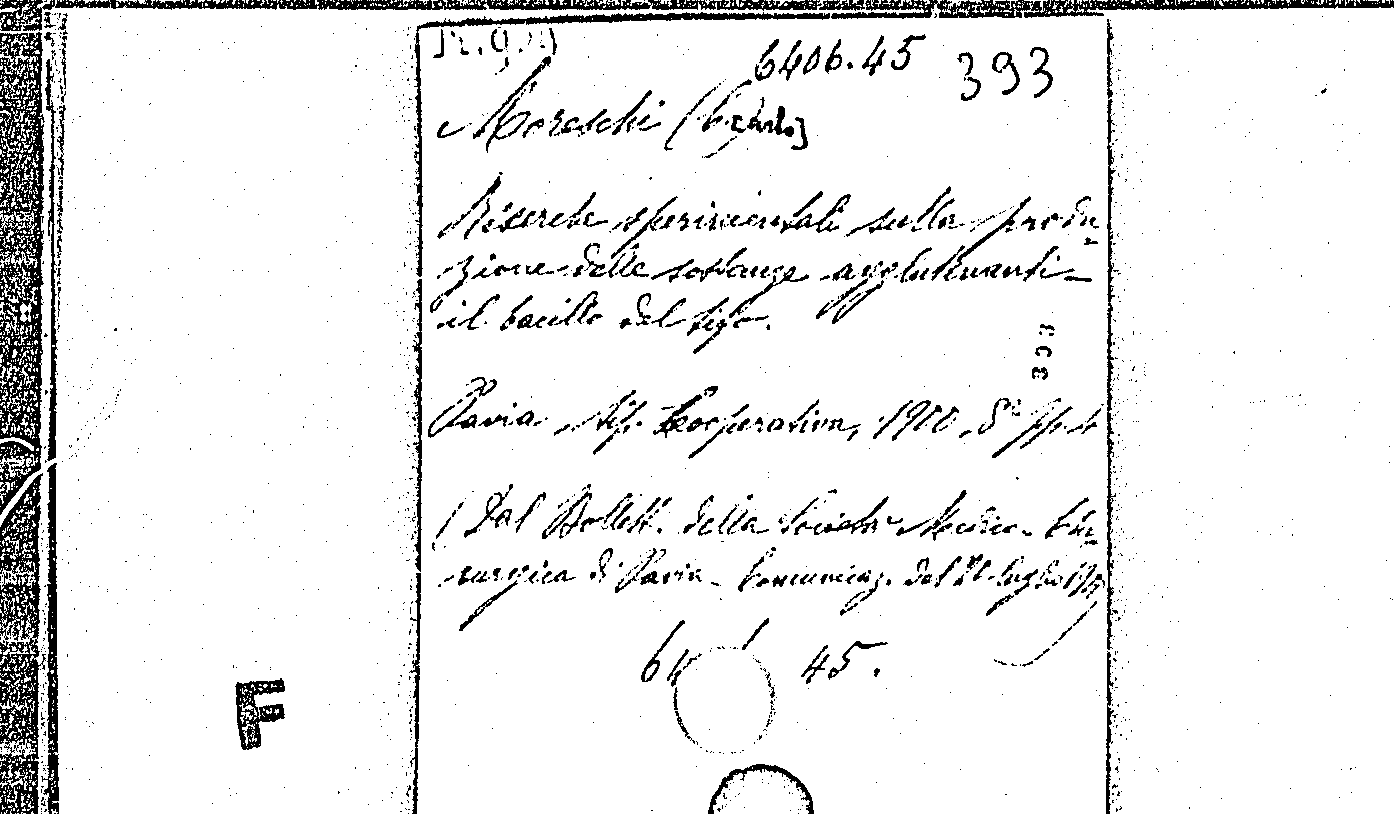 6406.45 393
Moreschi (C[arlo]
Ricerche sperimentali sulla produ-
zione delle sostanze agglutinanti
il bacillo del tifo.
393
Pavia, Tip. Cooperativa, 1900, 8° pp. 4
(Dal Bollett. della Società Medico-Chi-
rurgica di Pavia - Comunicaz. del luglio
64 45.
F